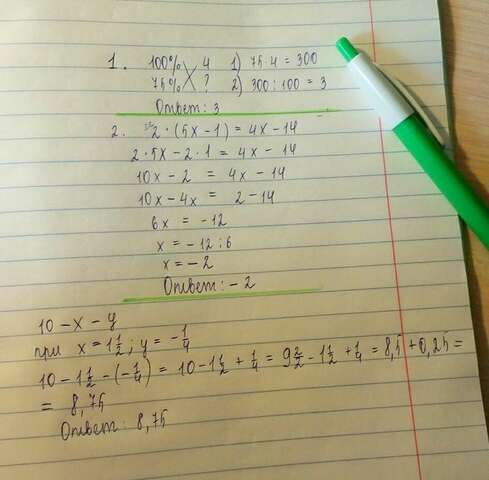 1. 100% 4 1) 75·4 = 300
75% ? 2) 300:100 = 3
Ответ: 3
2. 2·(5x-1) = 4x-14
2·5x-2·1 = 4x-14
10x-2 = 4x-14
10x-4x = 2-14
6x = -12
x = -12:6
x = -2
Ответ: -2
10-x-y
при x=1 1/2; y = -1/4
10-1 1/2-(-1/4) = 10-1 1/2+1/4 = 9 2/2-1 1/2+1/4 = 8,5+0,25 =
= 8,75
Ответ: 8,75